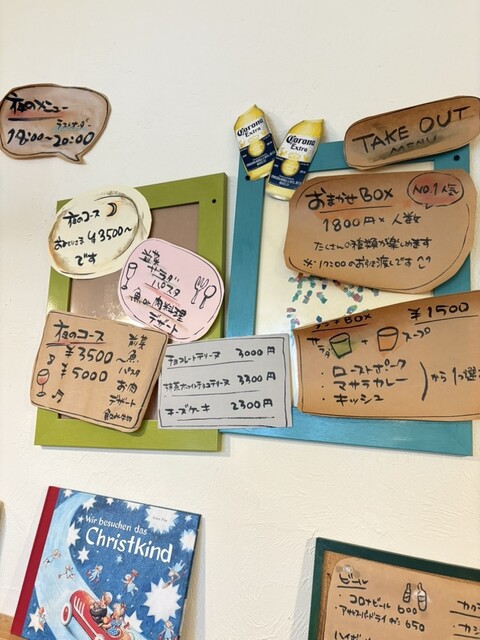 夜のメニュー
ラストオーダー
18:00～20:00
Corona
Extra
Corona
Extra
TAKE OUT
MENU
おまかせBOX
NO.1人気
1800円×人数
たくさんの種類が楽しめます
※17:00のお引き渡しです
夜のコース
¥3500～
です
前菜
サラダ
パスタ
魚or肉料理
デザート
夜のコース
¥3500～
¥5000
前菜
魚
パスタ
お肉
デザート
チョコレートテリーヌ 3000円
抹茶ホワイトチョコテリーヌ 3300円
チーズケーキ 2300円
ランチBOX ¥1500
サラダ + スープ
・ローストポーク
・マサラカレー
・キッシュ
から1つ選
Wir besuchen das
Christkind
ビール
・コロナビール 600
・アサヒスーパードライ 650
ハイボ
カク
・カシ